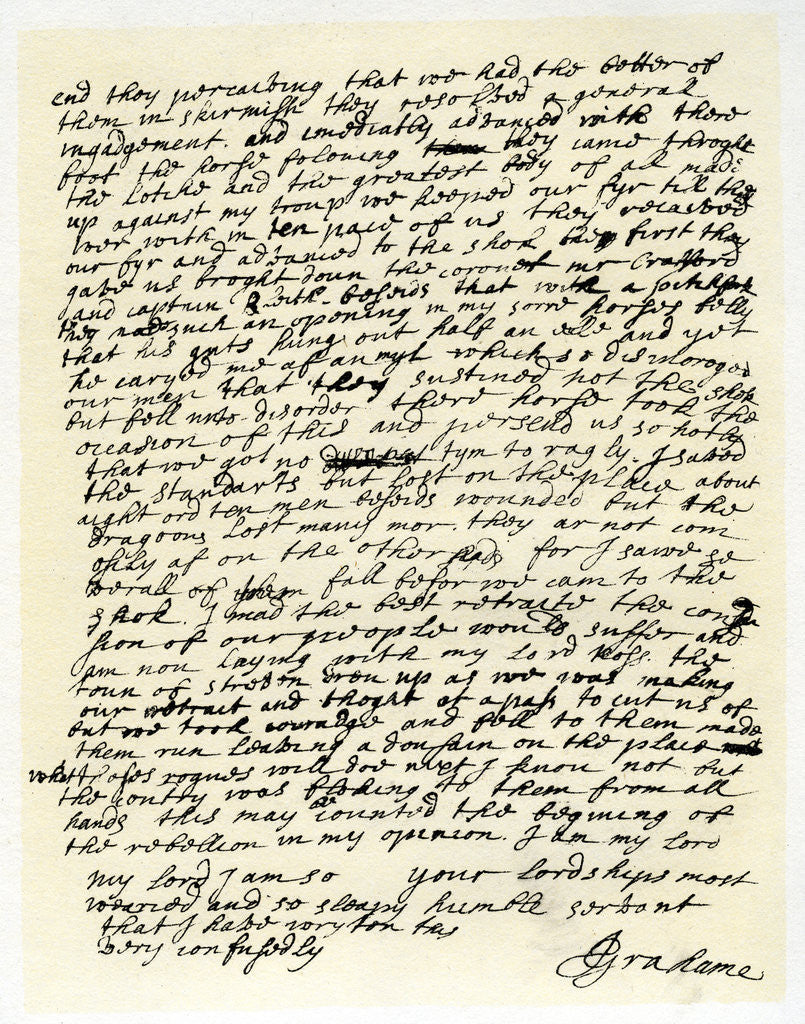 end they percaiving that we had the better of
them in skirmish they resolved a generall
ingadgement. and imediatly advanced with there
foot the horse folouing they came throght
the lotche and the greatest body of all made
up against my troup we keeped our fyr till they
wer with in ten pace of us they recaived
our fyr and advanced to the shok they first they
gave us broght doun the coronet mr Crafford
and captain Bleith. beseids that with a pitchfork
they made such an opening in my sorre horses belly
that his guts hung out half an elle and yet
he caryed me af an myl which so discoroged
our men that they sustined not the shok
but fell unto disorder there horse took the
occasion of this and persend us so hotly
that we got no tym to ragly. I saved
the standarts but lost on the place about
aight ord ten men beseids wounded but the
dragoons lost many mor. they ar not com
esily af on the other side for I sawe se
verall of them fall befor we cam to the
shok. I mad the best retraite the confu
sion of our people would suffer and
am nou laying with my Lord Ross. the
toun of streven dreu up as we was making
our retrait and thoght of a pass to cut us of
but we took couradge and fell to them made
them run leaving a dousain on the place
what thoses rogues will doe next I knou not but
the contry was floking to them from all
hands this may be counted the begining of
the rebellion in my opinion. I am my lord
my lord I am so your lordships most
wearied and so sleapy humble servant
that I have wryton this
very confusedly
JGrahame